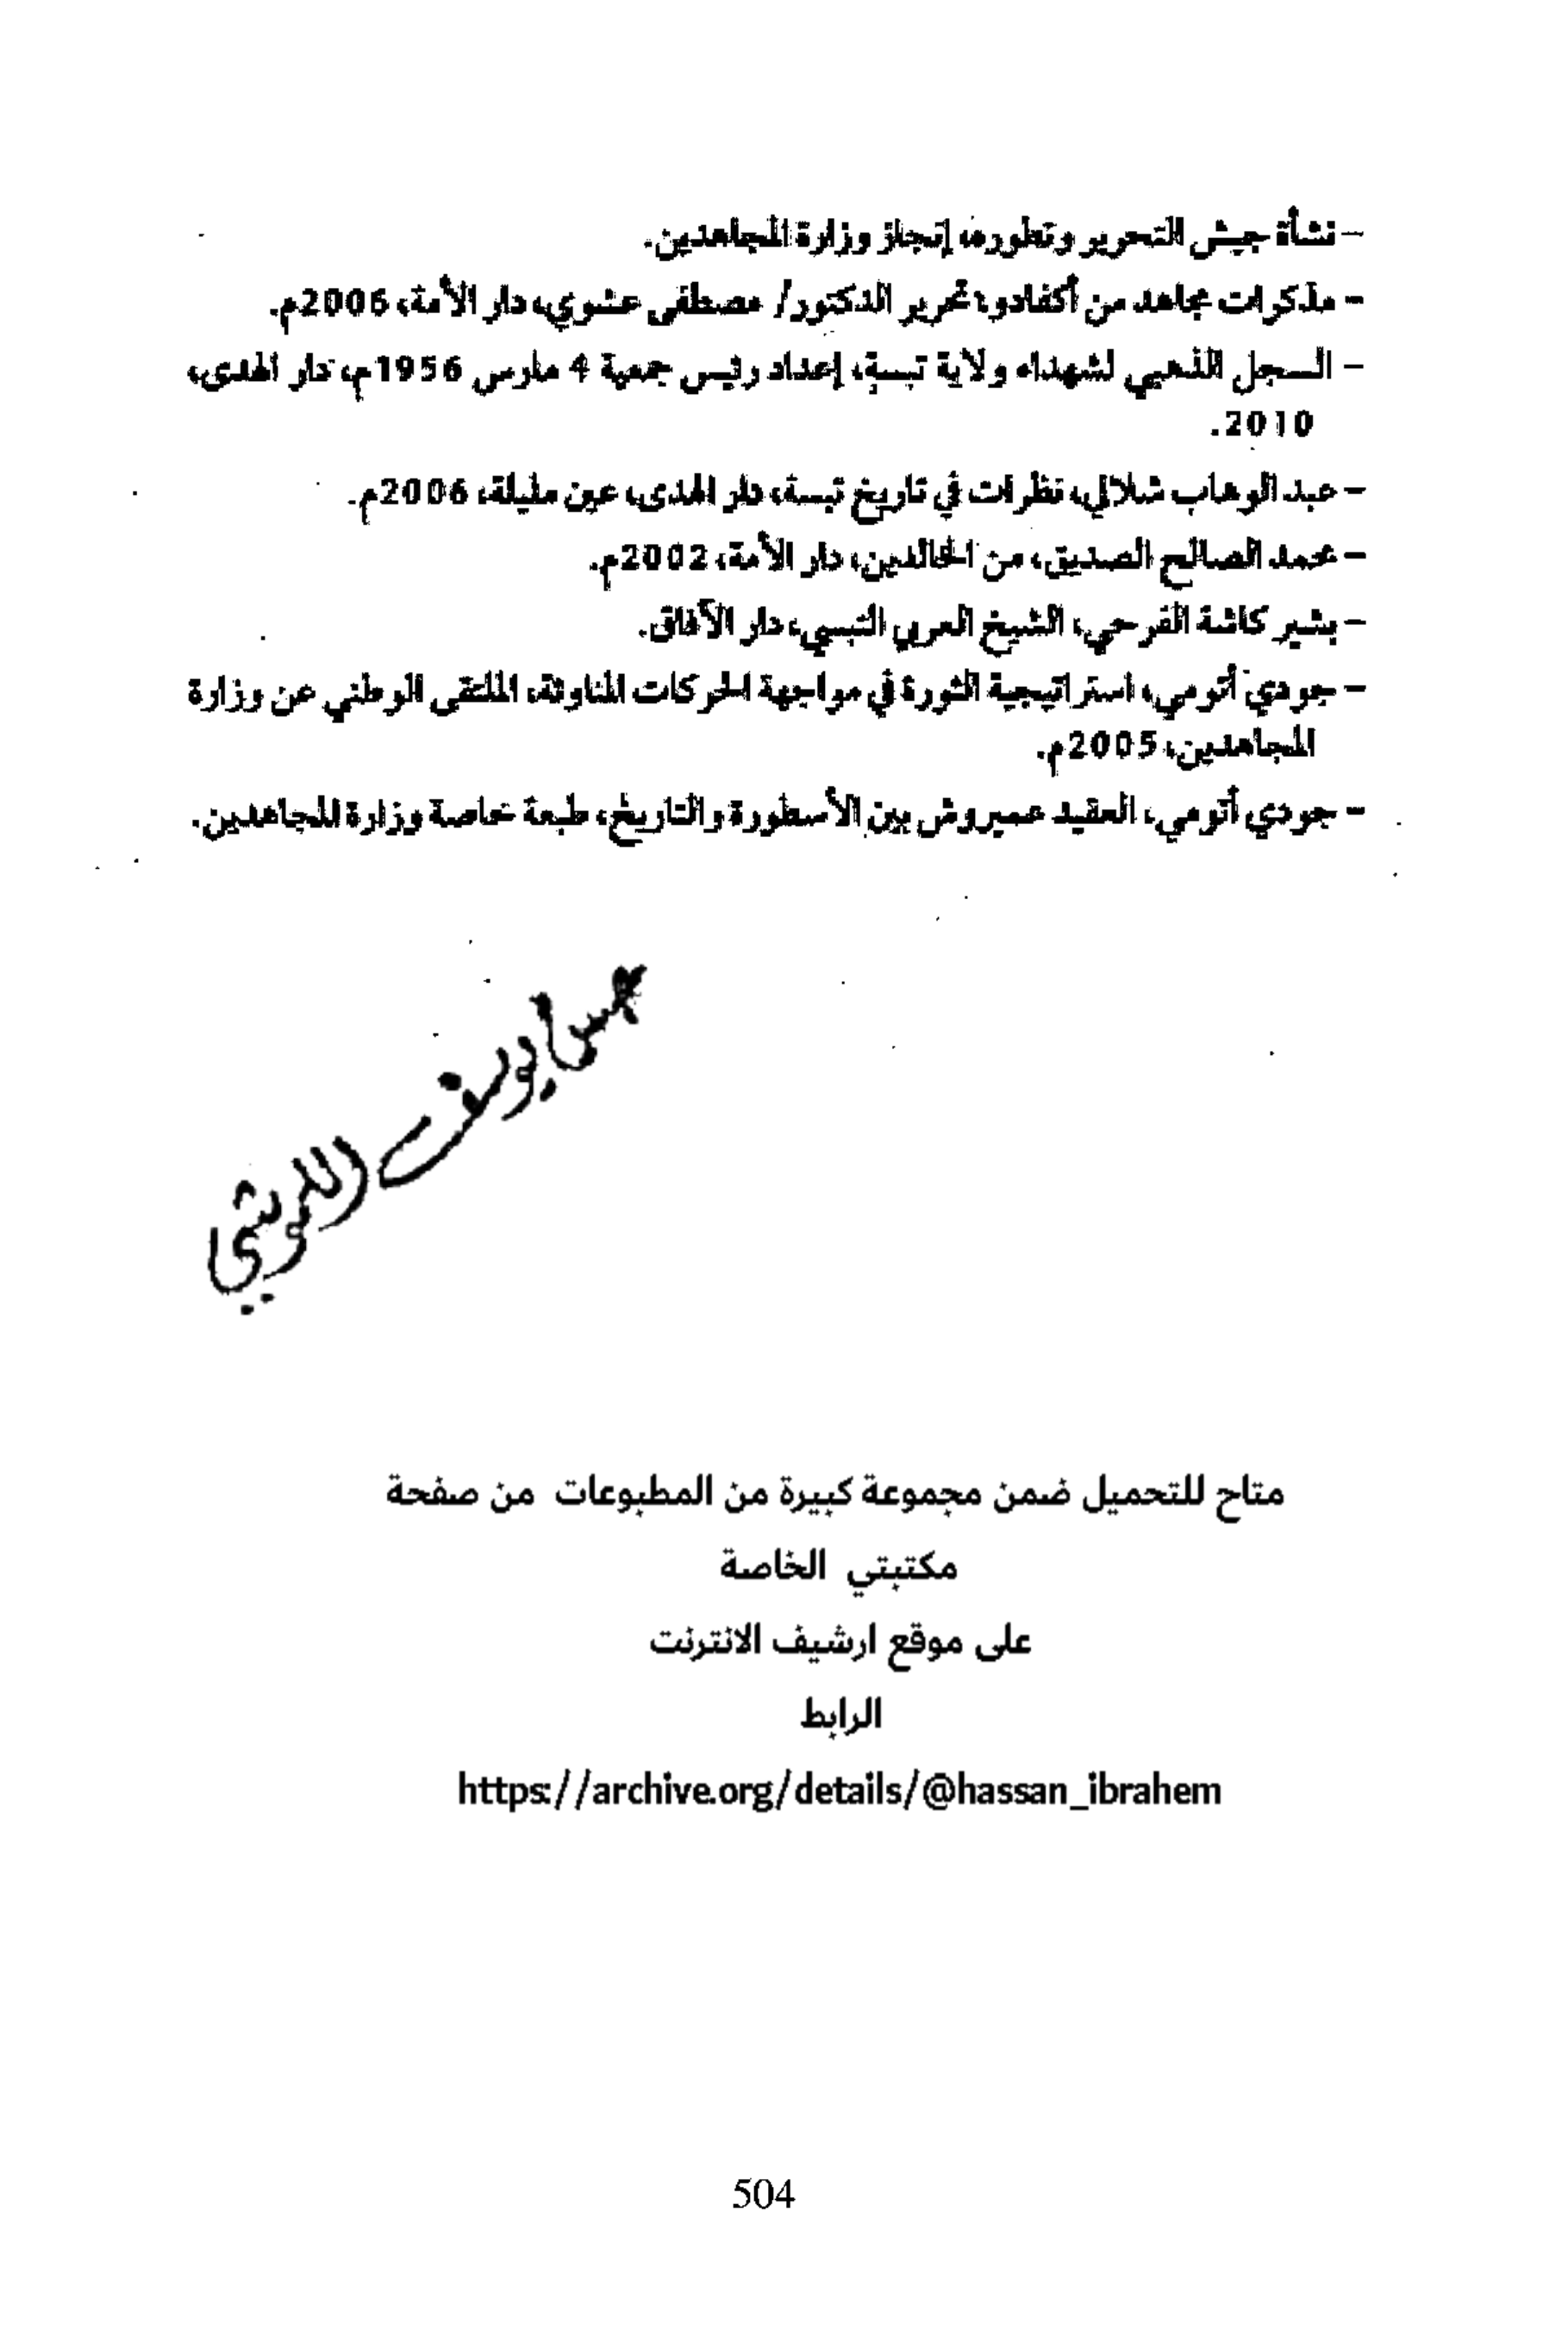 – نشأة جيش التحرير وتطوره، إنجاز وزارة المجاهدين.
– مذكرات مجاهد من أكفادو، تحرير الدكتور/ مصطفى عشوي، دار الأمة، 2006م.
– السجل الذهبي لشهداء ولاية تبسة، إعداد رئيس جمعية 4 مارس 1956م، دار الهدى،
2010.
– عبد الوهاب شلالي، نظرات في تاريخ تبسة، دار الهدى، عين مليلة، 2006م.
– محمد الصالح الصديق، من الخالدين، دار الأمة، 2002م.
– بشير كاشة الفرحي، الشيخ العربي التبسي، دار الآفاق.
– جودي أتومي، استراتيجية الثورة في مواجهة الحركات المناوئة، الملتقى الوطني عن وزارة
المجاهدين، 2005م.
– جودي أتومي، العقيد عميروش بين الأسطورة والتاريخ، طبعة خاصة وزارة للمجاهدين.
يوسف
متاح للتحميل ضمن مجموعة كبيرة من المطبوعات من صفحة
مكتبتي الخاصة
على موقع ارشيف الانترنت
الرابط
https://archive.org/details/@hassan_ibrahem
504